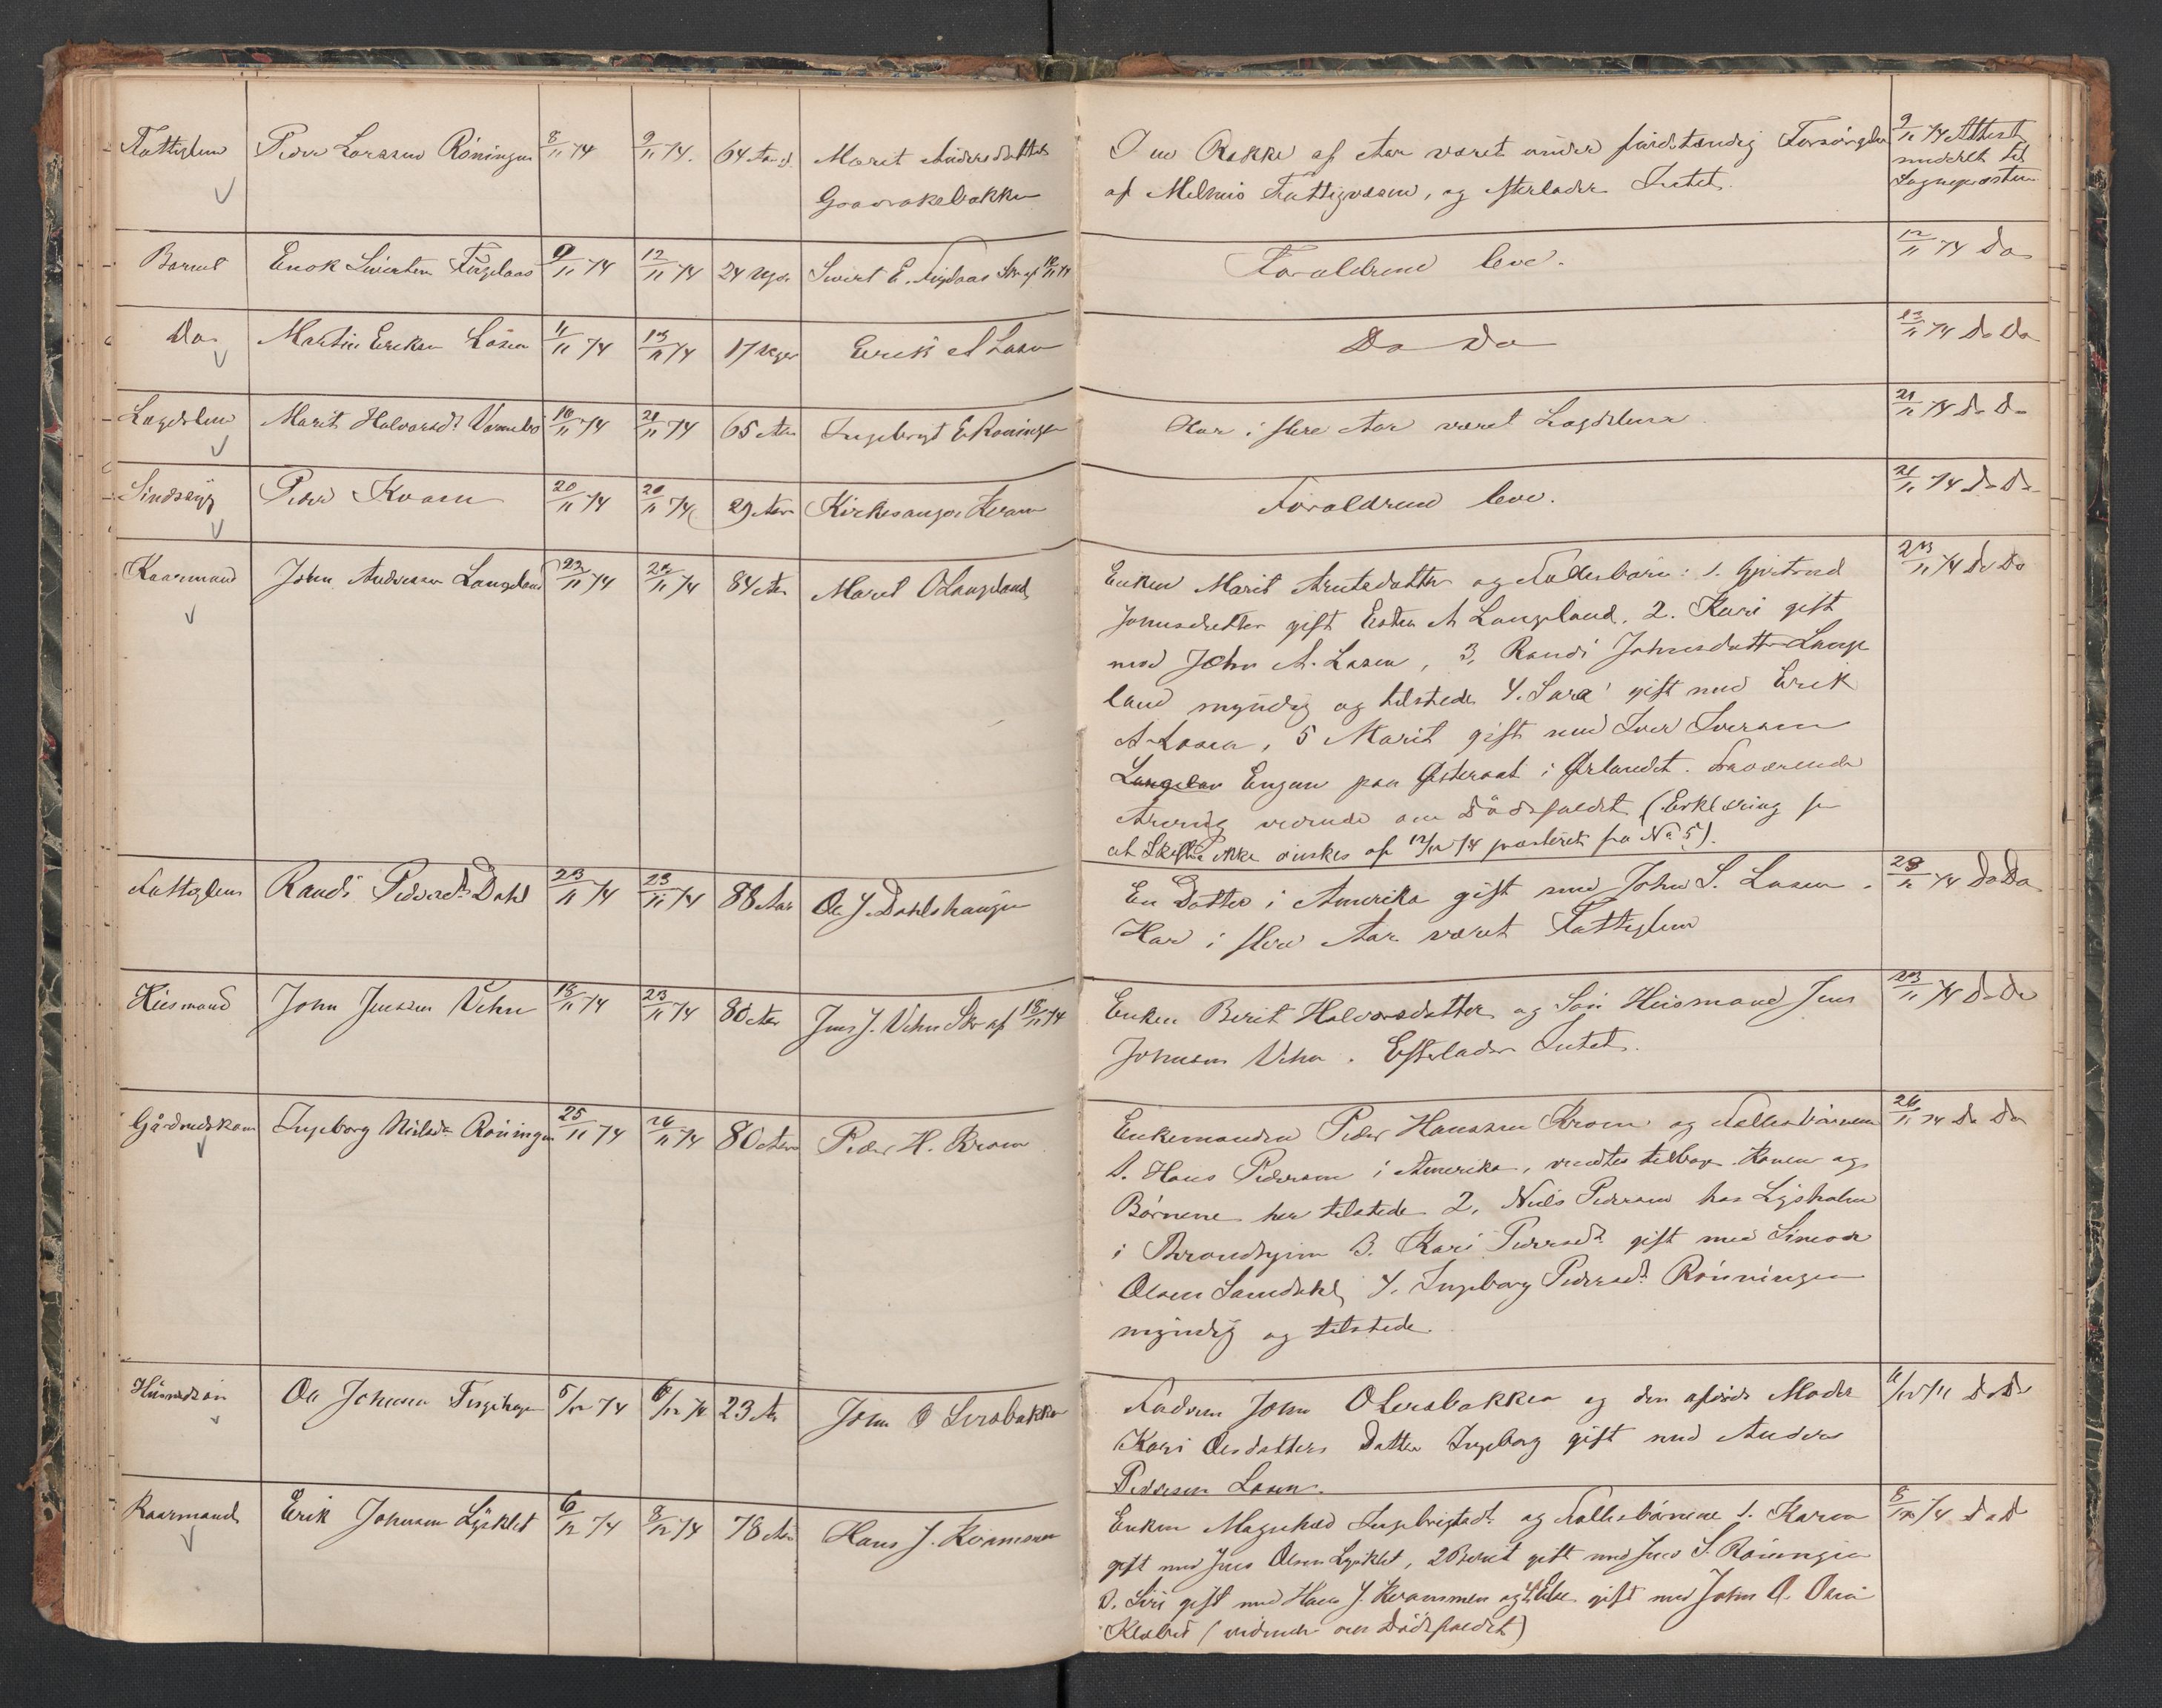 Fattiglem Peder Larssen Röningen 8/11 74 9/11 74. 64 Aar Marit Andersdatter
Graavakebakken
I en Række af Aar været under fuldstændig Forsörgelse
af Melhus Fattigvæsen, og efterlader Intet.
9/11 74 Attest
meddelt til
Sognepræsten
Barnet Enok Sivertsen 9/11 74 12/11 74 24 Uger Sivert E.
Forældrene leve.
12/11 74 Do
Do Martin Eriksen Låsen 11/11 74 13/11 74 17 Uger Erik A Låsen
Do Do
13/11 74 Do Do
Lægdslem Marit Halvorsdr 18/11 74 21/11 74 65 Aar Ingebrigt E Röningen
Har i flere Aar været Lægdslem
21/11 74 Do Do
Sindssyg Peder Kvam 20/11 74 20/11 74 29 Aar Kirkesanger Kvam
Forældrene leve.
21/11 74 Do Do
Kaarmand John Anderssen Langeland 23/11 74 84 Aar Marit O Langeland
Enken Marit Arntsdatter og Fællesbørn: 1. Gjertrud
Johnsdatter gift Esten A Langeland. 2. Kari gift
med John A. Låsen, 3, Randi Johnsdatter Lange
land myndig og tilstede 4. Sara gift med Erik
A Låsen, 5 Marit gift med Iver Iversen
Engan paa Østeraat i Ørlandet. Fraværende
Arving vidende om Dödsfaldet (Erklæring
at Skifte ikke önskes af 12/12 74 fra No 5).
23/11 74 Do Do
Fattiglem Randi Pedersdr Dahl 23/11 74 23/11 74 88 Aar Ole J. Dahlshaugen
En Datter i Amerika gift med John S. Låsen.
Har i flere Aar været Fattiglem
23/11 74 Do Do
Huusmand John Jenssen Vehn 18/11 74 23/11 74 80 Aar Jens J. Vehn Skr af 18/11 74
Enken Berit Halvorsdatter og Sön Huusmand Jens
Johnsen Vehn. Efterlader Intet.
23/11 74 Do Do
Gårdmandskone Ingeborg Nielsdr Röningen 25/11 74 26/11 74 80 Aar Peder H. Kroen
Enkemanden Peder Hanssen Kroen og Fællesbörnene
1. Hans Pedersen i Amerika, ventes tilbage Konen og
Börnene her tilstede 2. Niels Pedersen hos Lysholm
i Throndhjem 3. Kari Pedersdr gift med Simon
Olsen Samdahl, 4. Ingeborg Pedersdr Rönningen
myndig og tilstede.
26/11 74 Do Do
Huusmdsön Ole Johnsen 5/12 74 6/12 74 23 Aar John O Lersbakken
Faderen John O Lersbakken og den afdöde Moder
Kari Olesdatters Datter Ingeborg gift med Anders
Pedersen Låsen.
6/12 74 Do Do
Kaarmand Erik Johnsen Lyskled 6/12 74 8/12 74 78 Aar Hans J. Kvammen
Enken Magnhild Ingebrigtsdr og Fællesbörnene 1. Karen
gift med Jens Olsen Lyskled, 2 Berit gift med Jens S. Röningen
3. Siri gift med Hans J. Kvammen og 4 Else gift med John A.
(vidende om Dödsfaldet)
8/12 74 Do Do